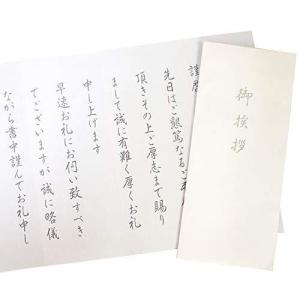 謹啓
先日はご懇篤なる
頂きその上ご厚志まで賜り
まして誠に有難く厚くお礼
申し上げます
早速お礼にお伺い致すべき
でございますが誠に略儀
ながら書中謹んでお礼申し
御挨拶